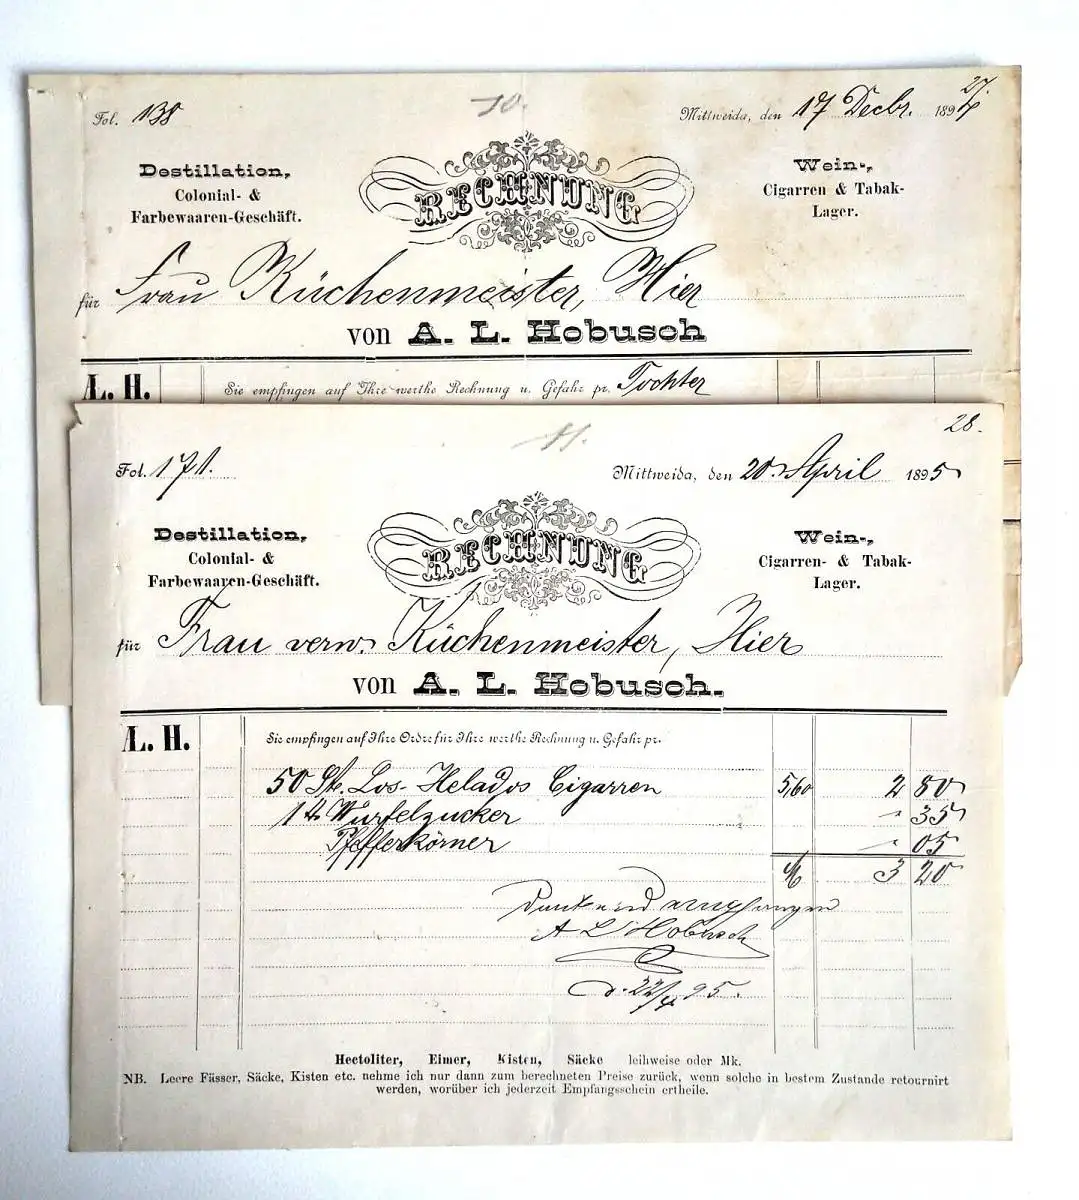 27.
Fol. 138
10.
Mittweida, den 17 Decbr. 1894
Destillation,
Colonial- &
Farbewaaren-Geschäft.
RECHNUNG
Wein-,
Cigarren & Tabak-
Lager.
für Frau Küchenmeister, Hier
von A. L. Hobusch
A. L. H.
Sie empfingen auf Ihre werthe Rechnung u. Gefahr pr. Tochter
28.
11.
Fol. 171.
Mittweida, den 20. April 1895
Destillation,
Colonial- &
Farbewaaren-Geschäft.
RECHNUNG
Wein-,
Cigarren- & Tabak-
Lager.
für Frau verw. Küchenmeister, Hier
von A. L. Hobusch.
A. L. H.
Sie empfingen auf Ihre Ordre für Ihre werthe Rechnung u. Gefahr pr.
50 St. Los-Helados Cigarren 5,60 2 80
1 ℔ Würfelzucker - 35
Pfefferkörner - 05
ℳ 3 20
Dankend empfangen
A L Hobusch
d. 22/4 95.
Hectoliter, Eimer, Kisten, Säcke leihweise oder Mk.
NB. Leere Fässer, Säcke, Kisten etc. nehme ich nur dann zum berechneten Preise zurück, wenn solche in bestem Zustande retournirt
werden, worüber ich jederzeit Empfangsschein ertheile.